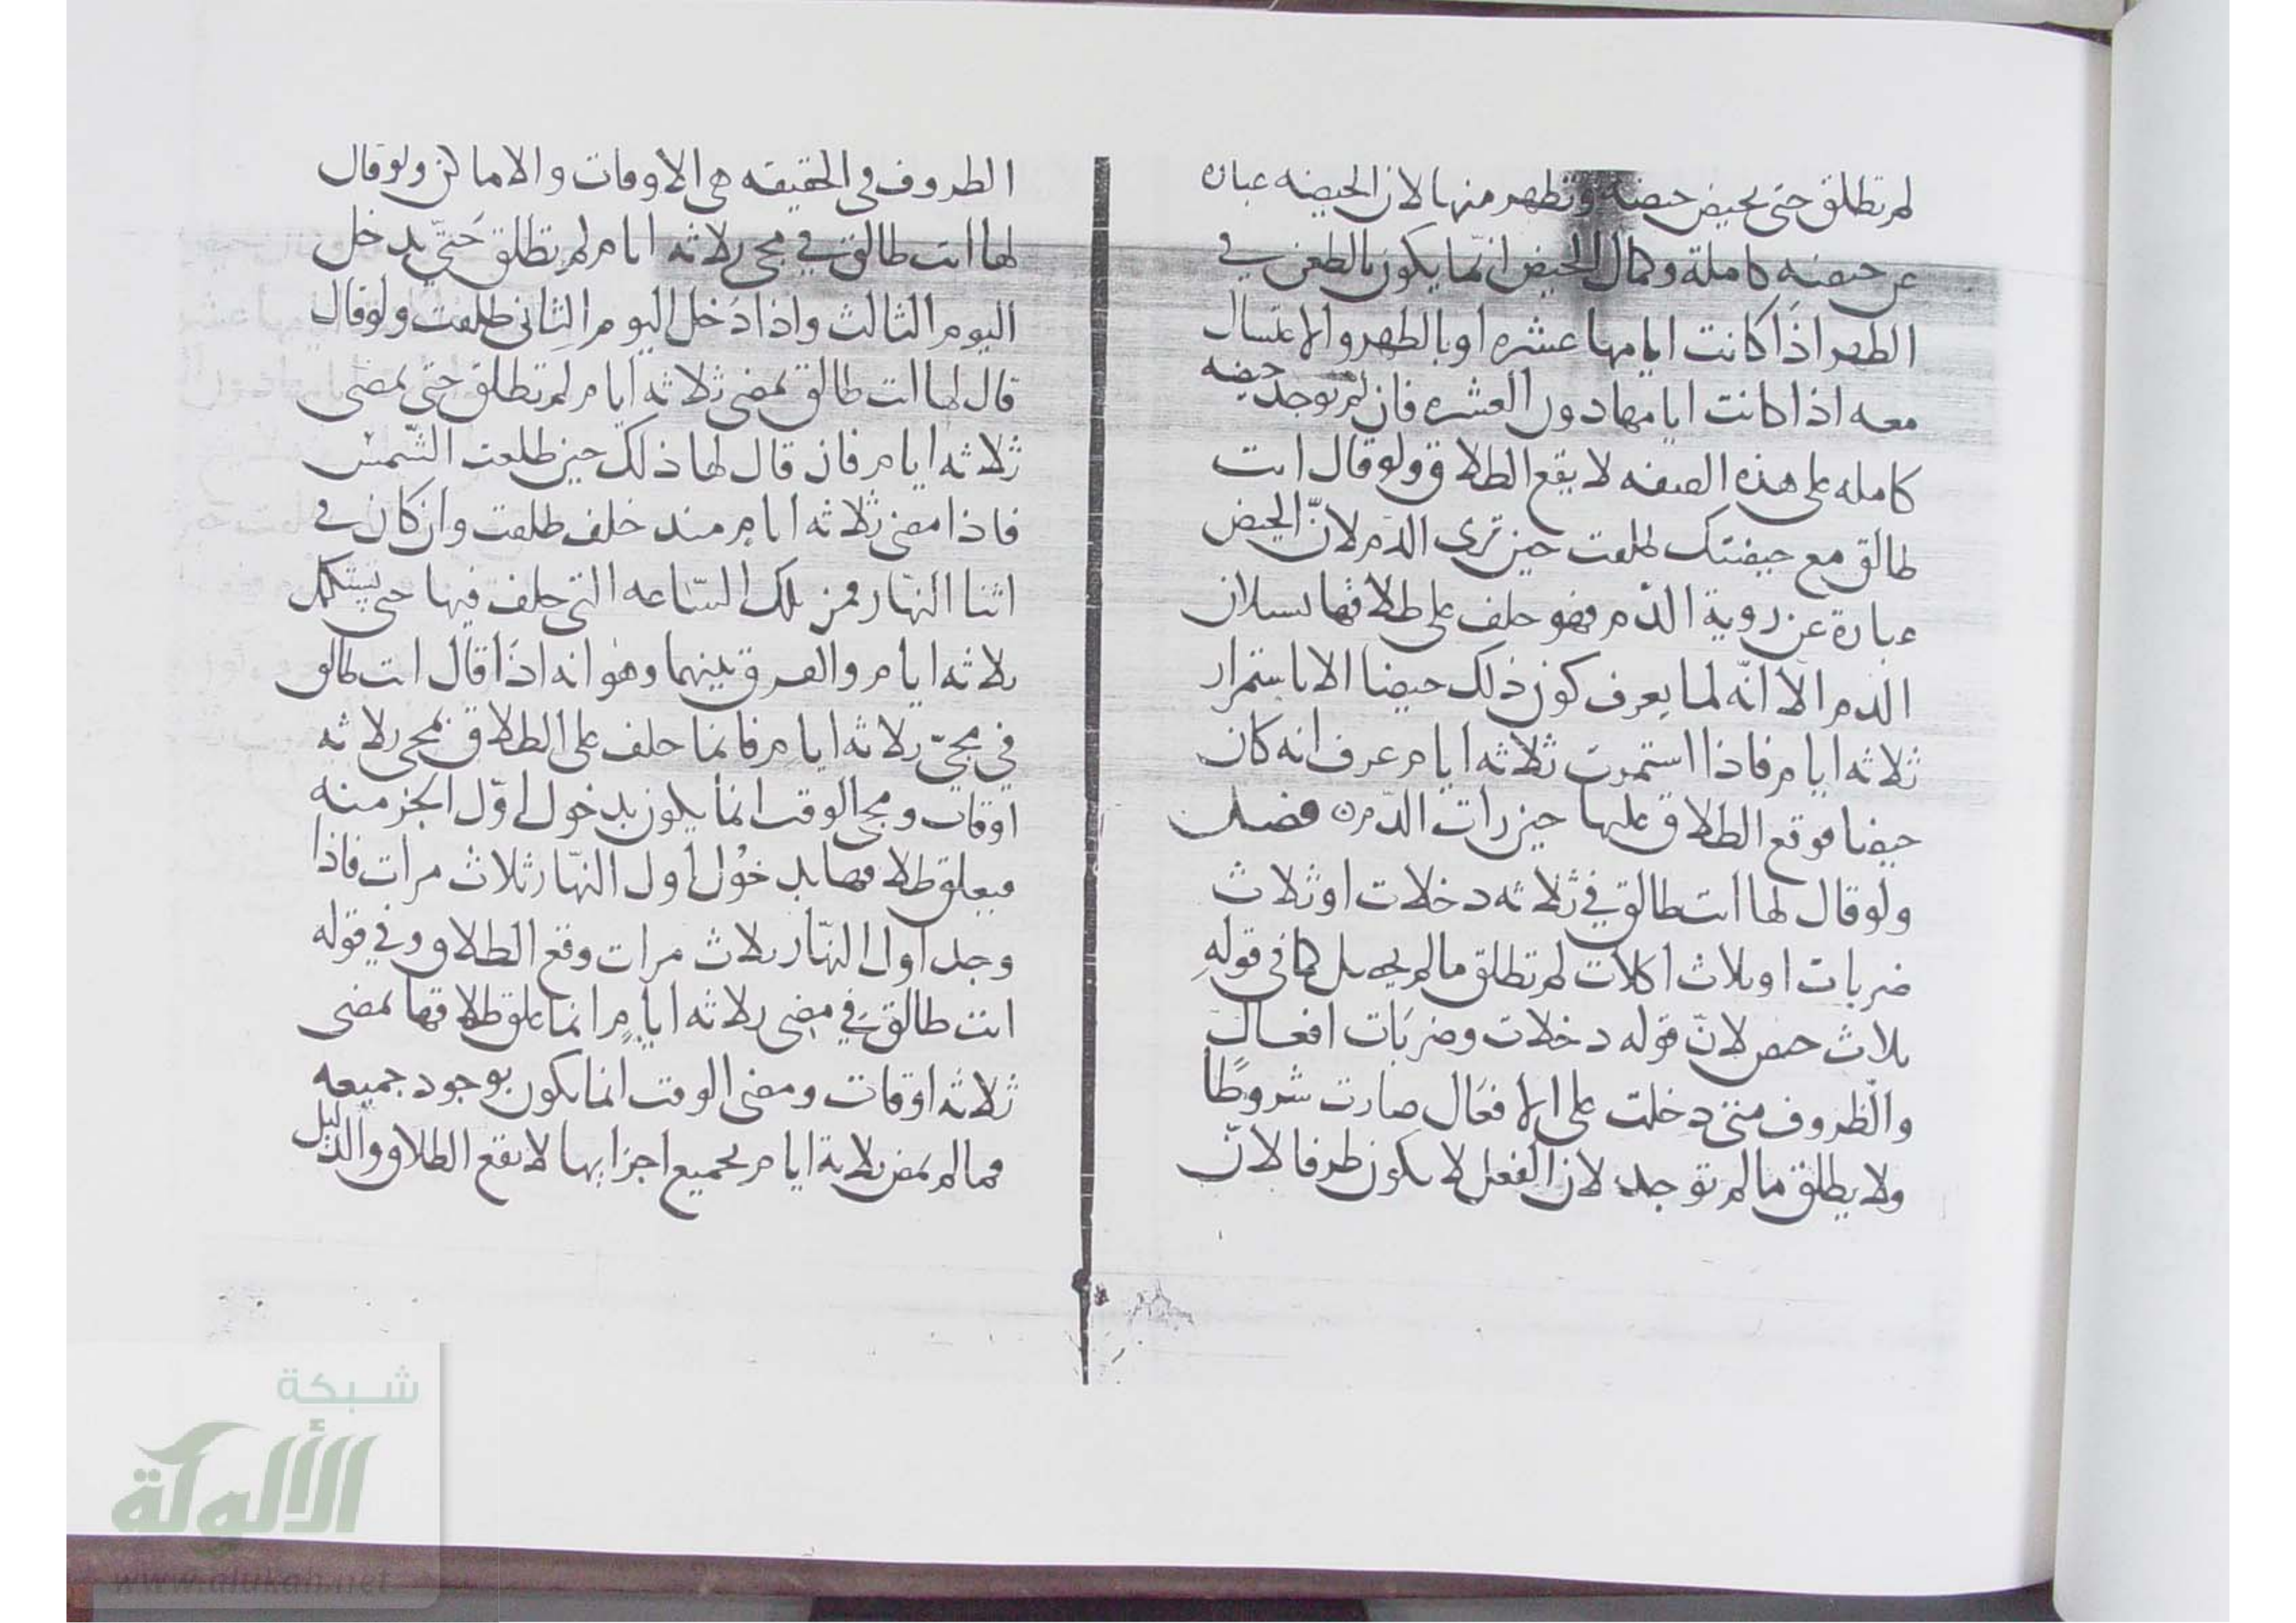 لم تطلق حتى تحيض حيضة وتطهر منها لان الحيضه عبارة
عن حيضه كاملة وكمال الحيض انما يكون بالطعن في
الطهر اذا كانت ايامها عشره او بالطهر والاغتسال
معه اذا كانت ايامها دون العشره فان لم توجد حيضه
كامله على هذه الصفه لا يقع الطلاق ولو قال انت
طالق مع حيضتك طلقت حين ترى الدم لانّ الحيض
عبارة عن روية الدم فهو حلف على طلاقها بسيلان
الدم الا انّه لما يعرف كون ذلك حيضا الا باستمرار
ثلاثه ايام فاذا استمرت ثلاثه ايام عرف انه كان
حيضا فوقع الطلاق عليها حين رات الدم ن فصل
ولو قال لها انت طالق في ثلاثه دخلات او ثلاث
ضربات او ثلاث اكلات لم تطلق مالم يحصل كما في قوله
ثلاث حيض لانّ قوله دخلات وضربات افعال
والظروف متى دخلت على الافعال صارت شروطًا
ولا يطلق مالم توجد لان الفعل لا يكون ظرفا لانّ
الظروف في الحقيقه هي الاوقات والاماكن ولو قال
لها انت طالق في مجى ثلاثه ايام لم تطلق حَتىّ يدخل
اليوم الثالث واذا دخل اليوم الثانى طلقت ولو قال
قال لها انت طالق بمضى ثلاثه ايام لم تطلق حتى يمضى
ثلاثه ايام فان قال لها ذلك حين طلعت الشّمس
فاذا مضى ثلاثه ايام منذ حلف طلقت وان كان في
اثنا النهار فمن تلك السّاعه التى حلف فيها حتى يستكمل
ثلاثه ايام والفرق بينهما وهو انه اذا قال انت طالق
في مجىّ ثلاثه ايام فانما حلف على الطلاق بمجى ثلاثه
اوقات ومجى الوقت انما يكون بدخول اوّل الجز منه
فيعلق طلاقها بدخول اول النهّار ثلاث مرات فاذا
وجد اول النهّار ثلاث مرات وقع الطلاق وفي قوله
انت طالق في مضى ثلاثه ايام انما علق طلاقها بمضى
ثلاثه اوقات ومضى الوقت انما يكون بوجود جميعه
فما لم يمض ثلاثة ايام بجميع اجزايها لا يقع الطلاق والدليل
شبكة
الألوكة
www.alukah.net